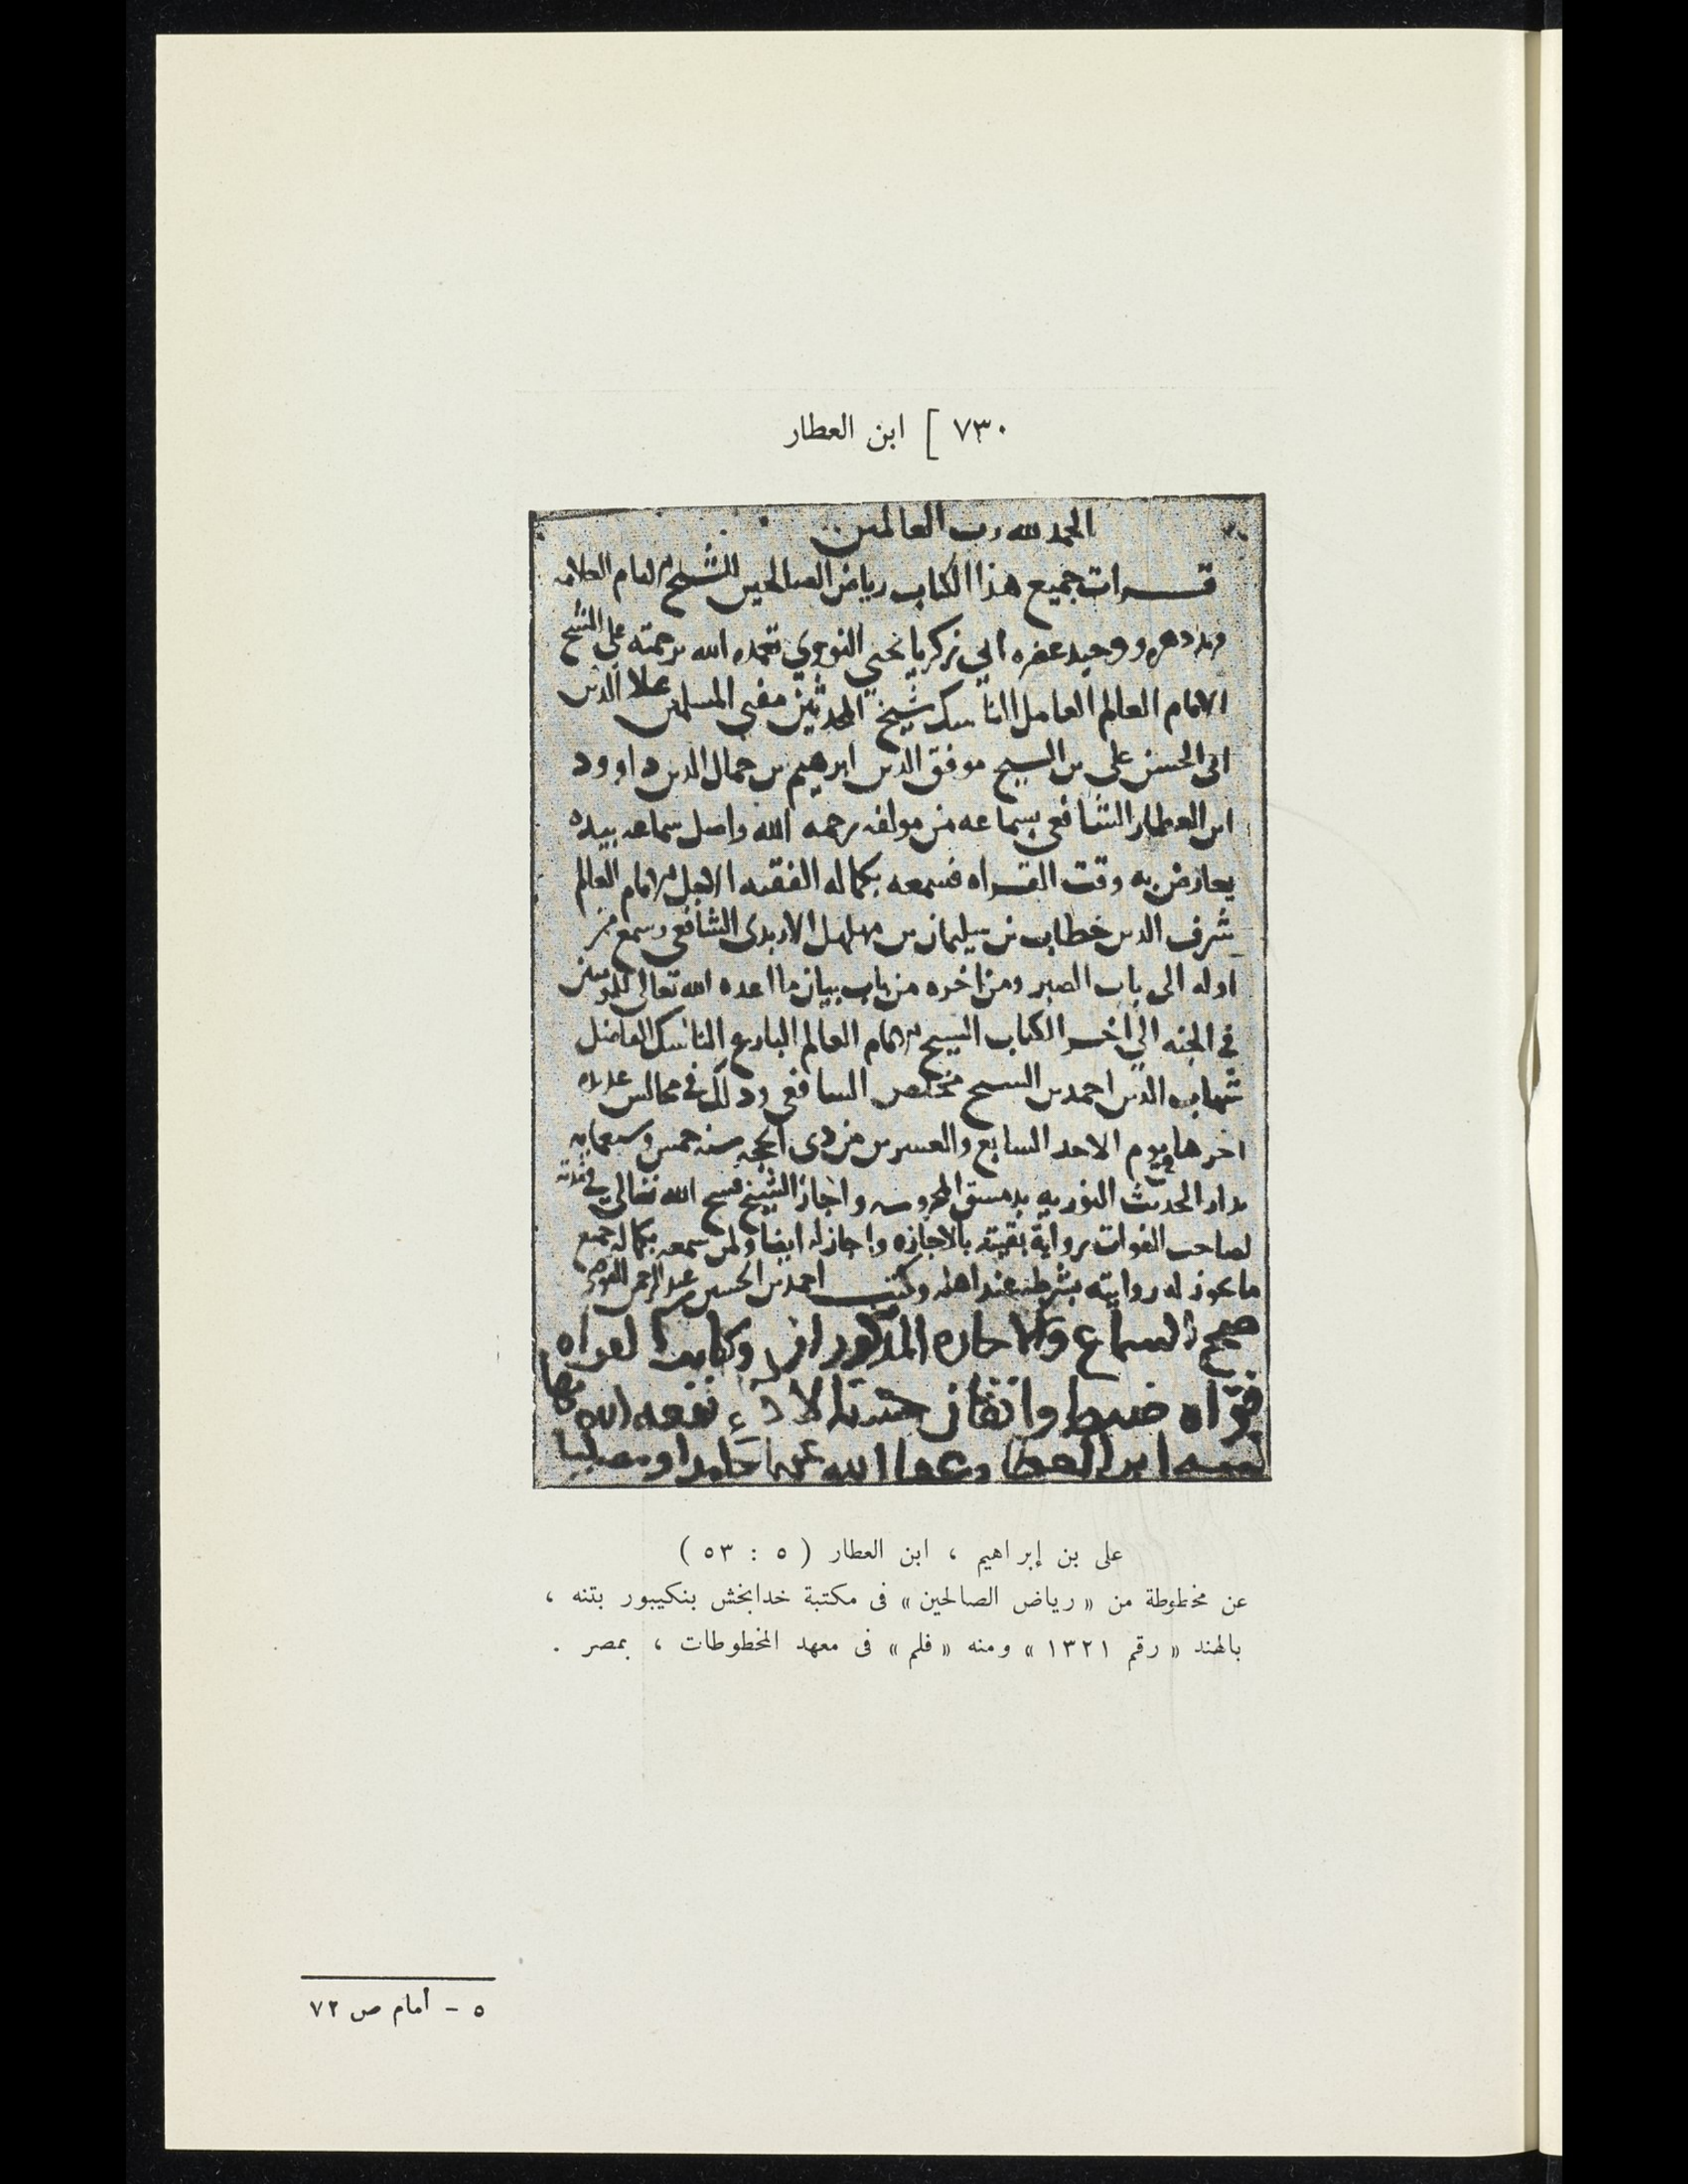 ٧٣٠ [ ابن العطار
الحمد لله رب العالمين
قرات جميع هذا الكتاب رياض الصالحين للشيخ الامام العلامه
دهره ووحيد عصره ابي زكريا يحيى النووي تغمده الله برحمته على الشيخ
الامام العالم العامل الناسك شيخ المحدثين مفتي المسلمين علا الدين
ابي الحسن علي بن الشيخ موفق الدين ابرهيم بن جمال الدين داوود
ابن العطار الشافعي بسماعه من مولفه رحمه الله واصل سماعه بيده
يعارض به وقت القراه فسمعه بكماله الفقيه الاجل الامام العالم
شرف الدين خطاب بن سليمان بن مهلهل الاربدي الشافعي وسمع من
اوله الى باب الصبر ومن اخره من باب بيان ما اعده الله تعالى للمومنين
في الجنه الى اخر الكتاب الشيخ الامام العالم البارع الناسك الفاضل
شهاب الدين احمد بن الشيخ الشافعي وذلك في مجالس عديده
اخرها يوم الاحد السابع والعشرين من ذي الحجه سنه خمس وسبعمايه
بدار الحديث النوريه بدمشق المحروسه واجاز الشيخ فسح الله تعالى في مدته
لصاحب الفوات روايه بقيته بالاجازه واجاز له ايضا ولمن سمعه بكماله جميع
ما يجوز له روايته بشرطه عند اهله وكتب احمد بن الحسين بن عبد الرحمن
صحيح السماع والاجازه المذكوران وكاتبها
قراه ضبط واتقان حسنة الاداء نفعه الله بها
كتبه ابن العطار عفا الله عنه حامدا ومصليا
على بن إبراهيم ، ابن العطار ( ٥ : ٥٣ )
عن مخطوطة من « رياض الصالحين » فى مكتبة خدابخش بنكيبور بتنه ،
بالهند « رقم ١٣٢١ » ومنه « فلم » فى معهد المخطوطات ، بمصر .
٥ – أمام ص ٧٢